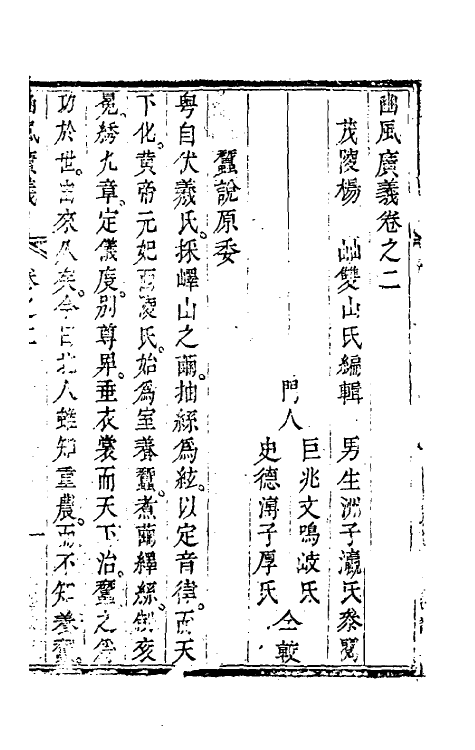 豳風廣義卷之二
茂陵楊屾雙山氏編輯 男生洲子瀛氏參閱
門人
巨兆文鳴岐氏
史德溥子厚氏
仝較
蠶說原委
粤自伏羲氏採嶧山之繭抽絲爲絃以定音律而天
下化黄帝元妃西陵氏始爲室養蠶煮繭繹絲制衮
冕綉九章定儀度别尊卑垂衣裳而天下治蠶之爲
功於世由來久矣今日北人雖知重農而不知養蠶
豳風廣義 卷之二 一